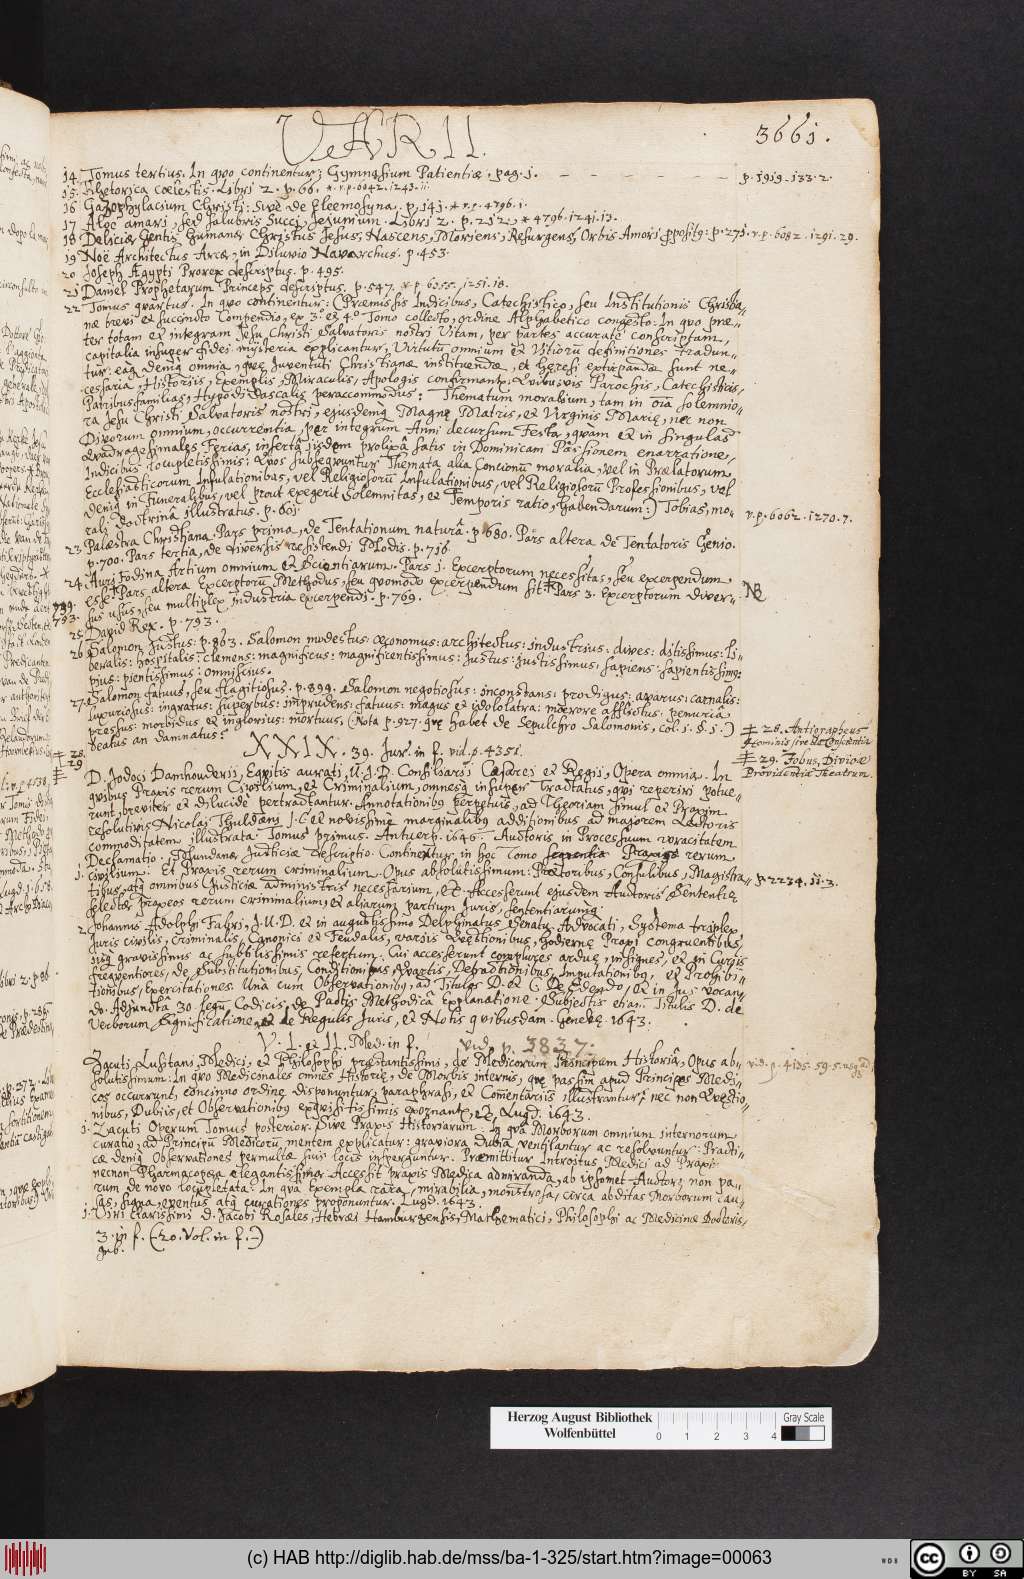 VARII.
3661.
14 Tomus tertius. In quo continentur; Gymnasium Patientiæ. pag. 1. p. 1919. 133. 2.
15. Rhetorica cœlestis. Libri 2. p. 66. * v. p. 6042. 1243. 11.
16 Gazophylacium Christi: Sive de Eleemosyna. p. 141. * v. p. 4796. 1.
17 Aloë amari, sed salubris succi, Jejunium. Libri 2. p. 212. * 4796. 1241. 13.
18 Deliciæ Gentis Humanæ Christus Jesus, Nascens, Moriens, Resurgens, Orbis Amori p. 275. v. p. 6082. 1291. 29.
19 Noë Architectus Arcæ, in Diluvio Navarchus. p. 453.
20 Joseph Ægypti Prorex descriptus. p. 495.
21 Daniel Prophetarum Princeps descriptus. p. 547. v. p. 6355. 1251. 18.
22 Tomus quartus. In quo continentur: (Præmissis Indicibus, Catechistico, seu Institutionis Christia-
næ brevi et succincto Compendio, ex 3. et 4.º Tomo collecto, ordine Alphabetico congesto: In quo præ-
ter totam et integram Jesu Christi Salvatoris nostri Vitam, per partes accuratè conscriptam,
capitalia insuper fidei mÿsteria explicantur, Virtutũ omnium et Vitiorũ definitiones tradun-
tur: eaq̃ deniq̃ omnia, quę Juventuti Christianæ instituendæ, et Hæresi extirpandæ sunt ne-
cessaria, Historiis, Exemplis, Miraculis, Apologis confirmantr; Quibusvis Parochis, Catechisticis,
Patribusfamilias, Hypodidascalis peraccommodus: Thematum moralium, tam in oĩa solemnio-
ra Jesu Christi Salvatoris nostri, ejusdemq̃ Magnę Matris, et Virginis Marię, nec non
Divorum omnium, occurrentia, per integrum Anni decursum Festa, quàm et in singulas
Quadragesimales Ferias, insertâ iisdem prolixâ satis in Dominicam Passionem enarratione,
Indicibus locupletissimis: Quos subsequuntur Themata alia Concionũ moralia, vel in Prælatorum
Ecclesiasticorum Infulationibus, vel Religiosorũ Infulationibus, vel Religiosorũ Professionibus, vel
deniq̃ in Funeralibus, vel prout exegerit Solemnitas, et Temporis ratio, habendarum:) Tobias, mo- v. p. 6062. 1270. 7.
rali doctrinâ illustratus. p. 601
23 Palæstra Christiana. Pars prima, de Tentationum naturâ. p. 680. Pars altera de Tentatoris Genio.
p. 700. Pars tertia, de diversis resistendi Modis. p. 716
24. Auri Fodina Artium omnium et Scientiarum. Pars 1. Excerptorum necessitas, seu excerpendum NB
esse. Pars altera Excerptorũ Methodus, seu quomodo excerpendum sit. Pars 3. Excerptorum diver-
sus usus, seu multiplex industria excerpendi. p. 769.
799.
793.
25. David Rex. p. 793.
26 Salomon Justus. p. 863. Salomon modestus: œconomus: architectus: industrius: dives: ditissimus: li-
beralis: hospitalis: clemens: magnificus: magnificentissimus: justus: justissimus: sapiens: sapientissimꝰ:
pius: pientissimus: omniscius.
27. Salomon fatuus, seu flagitiosus. p. 899. Salomon negotiosus: inconstans: prodigus: avarus: carnalis:
luxuriosus: ingratus: superbus: imprudens: fatuus: magus et idololatra: mærore afflictus: penuriâ
pressus: morbidus et inglorius: mortuus, (Nota p. 927. quę habet de Sepulchro Salomonis, col. 1. §. 5.)
beatus an damnatus?
28.
29
28. Antigrapheus
Hominis sive de Conscientia
29. Jobus, Divinæ
Providentiæ Theatrum.
XXIX. 39. Jur. in f. vid. p. 4351.
D. Jodoci Damhouderii, Equitis aurati, U.J.D. Consiliarij Cæsarei et Regii, Opera omnia. In
quibus Praxis rerum Civilium, et Criminalium, omnesq̃ insuper Tractatus, qui reperiri potue-
runt, breviter et dilucidè pertractantur. Annotationibꝰ perpetuis, ad Theoriam simul et Praxim
resolutivis Nicolai Thuldæni J.C. et novissimè marginalibꝰ additionibus ad majorem Lectoris
commoditatem illustrata. Tomus primus. Antuerp. 1646. Auctoris in Processuum voracitatem
Declamatio. Mundanæ Justiciæ descriptio. Continentur in hoc Tomo Praxis rerum
1. civilium. Et Praxis rerum criminalium. Opus absolutissimum: Prætoribus, Consulibus, Magistra- p. 2234. 11. 3.
tibus, atq̃ omnibus Justiciæ administris necessarium, etc. Accesserunt ejusdem Auctoris Sententię
selectæ praxeos rerum criminalium, et aliarum partium Juris, sententiarumq̃.
2. Johannis Adolphi Fabri, J.U.D. et in augustissimo Delphinatus Senatu Advocati, Systema triplex
Juris civilis, Criminalis, Canonici et Feudalis, variis Quęstionibus, hodiernę Praxi congruentibus,
iisq̃ gravissimis ac subtilissimis refertum. Cui accesserunt complures arduę, insignes, et in Curiis
frequentiores, de Substitutionibus, Conditionibus, Quartis, Detractionibus, Imputationibꝰ, et Prohibi-
tionibus, Exercitationes. Una cum Observationibꝰ, ad Titulos D. et C. De Edendo, et in Jus vocan-
do. Adjunctâ 30. legũ Codicis, de Pactis Methodicâ Explanatione: Subjectis etiã Titulis D. de
Verborum Significatione, et de Regulis Juris, et Notis quibusdam. Genevę. 1643.
V. I. et II. Med. in f. vid. p. 3837.
Zacuti Lusitani, Medici, et Philosophi præstantissimi, de Medicorum Principum Historiâ, Opus ab- vid. p. 4135. 59. 5. usq̃ ad
solutissimum: In quo Medicinales omnes Historię, de Morbis internis, quę passim apud Principes Medi-
cos occurrunt, concinno ordine disponuntur, paraphrasi, et Comentariis illustrantur: nec non Quęstio-
nibus, Dubiis, et Observationibꝰ exquisitissimis exornantr, etc. Lugd. 1643.
1. Zacuti Operum Tomus posterior. Sive Praxis Historiarum: In quâ Morborum omnium internorum
curatio, ad Principũ Medicorũ mentem explicatur: graviora Dubia ventilantur ac resolvuntur: Practi-
cæ deniq̃ Observationes permultæ suis locis insperguntur. Præmittitur Introitus Medici ad Praxin:
necnon Pharmacopœa elegantissima. Accessit Praxis Medica admiranda, ab ipsomet Auctore, non pa-
rum de novo locupletata: In quâ Exempla rara, mirabilia, monstrosa, circa abditas Morborum cau-
sas, signa, eventus atq̃ curationes proponuntur. Lugd. 1643.
1. Viri clarissimi D. Jacobi Rosales, Hebræi Hamburgensis, Mathematici, Philosophi ac Medicinæ Doctoris,
3. in f. (20. Vol. in f.)
Herzog August Bibliothek
Wolfenbüttel
0 1 2 3 4
Gray Scale
(c) HAB http://diglib.hab.de/mss/ba-1-325/start.htm?image=00063
WDB
cc BY SA